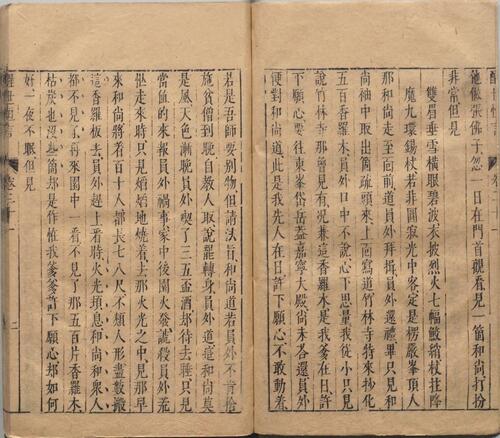 他做張佛子忽一日在門首觀看見一箇和尚打扮
非常但見
雙眉垂雪橫眼碧波衣披烈火七幅鮫綃杖拄降
魔九環錫杖若非圓寂光中客定是楞嚴峯頂人
那和尚走至面前道員外拜揖員外還禮畢只見和
尚袖中取出箇疏頭來上面寫道竹林寺特來抄化
五百香羅木員外口中不說心下思量我從小只見
說竹林寺那曾見有况兼這香羅木是我爹在日許
下願心要往東峯岱岳蓋嘉寧大殿尚未答還員外
便對和尚道此是我先人在日許下願心不敢動着
若是吾師要別物但請法旨和尚道若員外不肯捨
施貧僧到晚自教人取說罷轉身員外道這和尚莫
是風天色漸晚員外喫了三五盃酒却待去睡只見
當値的來報員外禍事家中後園火發諕殺員外慌
忙走來時只見焰焰地燒着去那火光之中見那早
來和尚將着百十人都長七八尺不類人形盡數搬
這香羅板去員外趕上看時火光頓息和尚和衆人
都不見了再來園中一看不見了那五百片香羅木
枯炭也沒些箇却是作怪我爹爹許下願心却如何
好一夜不眠但見
醒世恒言
卷三十一
二